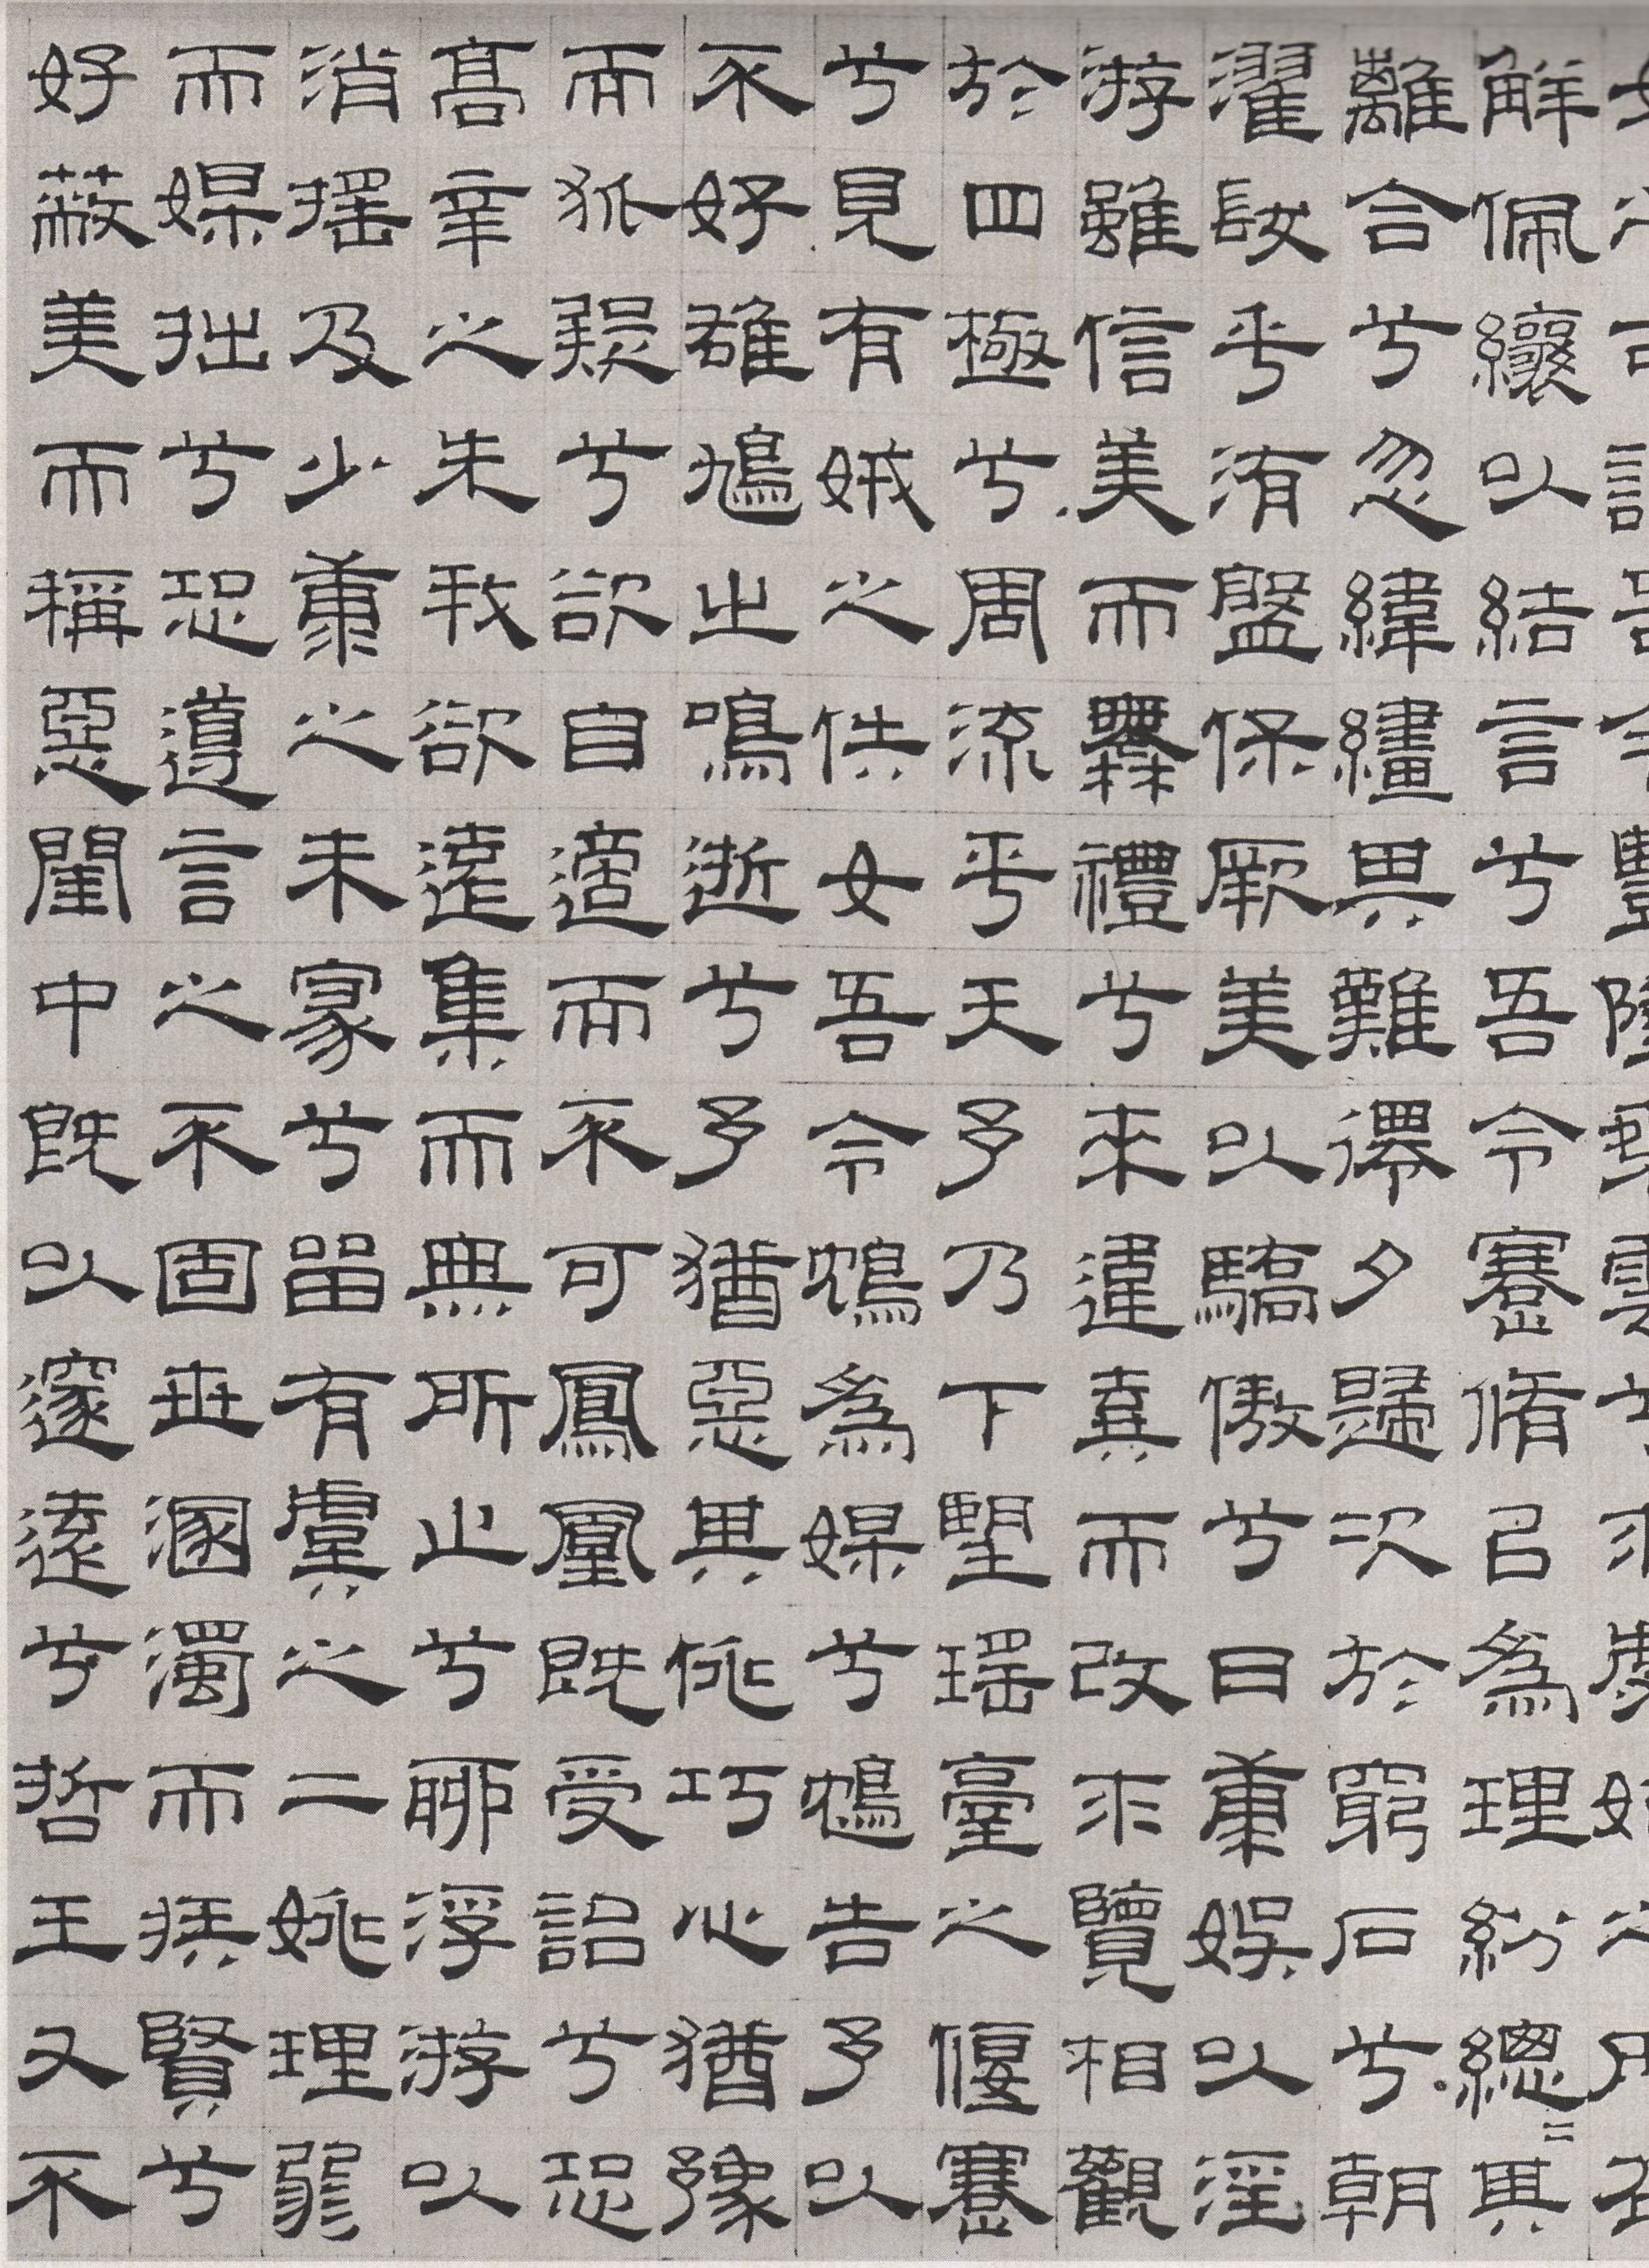 解佩纕以結言兮吾令蹇脩㠯為理紛總二其
離合兮忽緯繣其難遷夕歸次於窮石兮朝
濯髮乎洧盤保厥美以驕傲兮日康娛以淫
游雖信美而無禮兮來違棄而改求覽相觀
於四極兮周流乎天予乃下望瑤臺之偃蹇
兮見有娀之佚女吾令鴆為媒兮鴆告予以
不好雄鳩之鳴逝兮予猶惡其佻巧心猶豫
而狐疑兮欲自適而不可鳳凰既受詒兮恐
高辛之先我欲遠集而無所止兮聊浮游以
消搖及少康之未家兮留有虞之二姚理弱
而媒拙兮恐導言之不固世溷濁而疾賢兮
好蔽美而稱惡閨中既以邃遠兮哲王又不